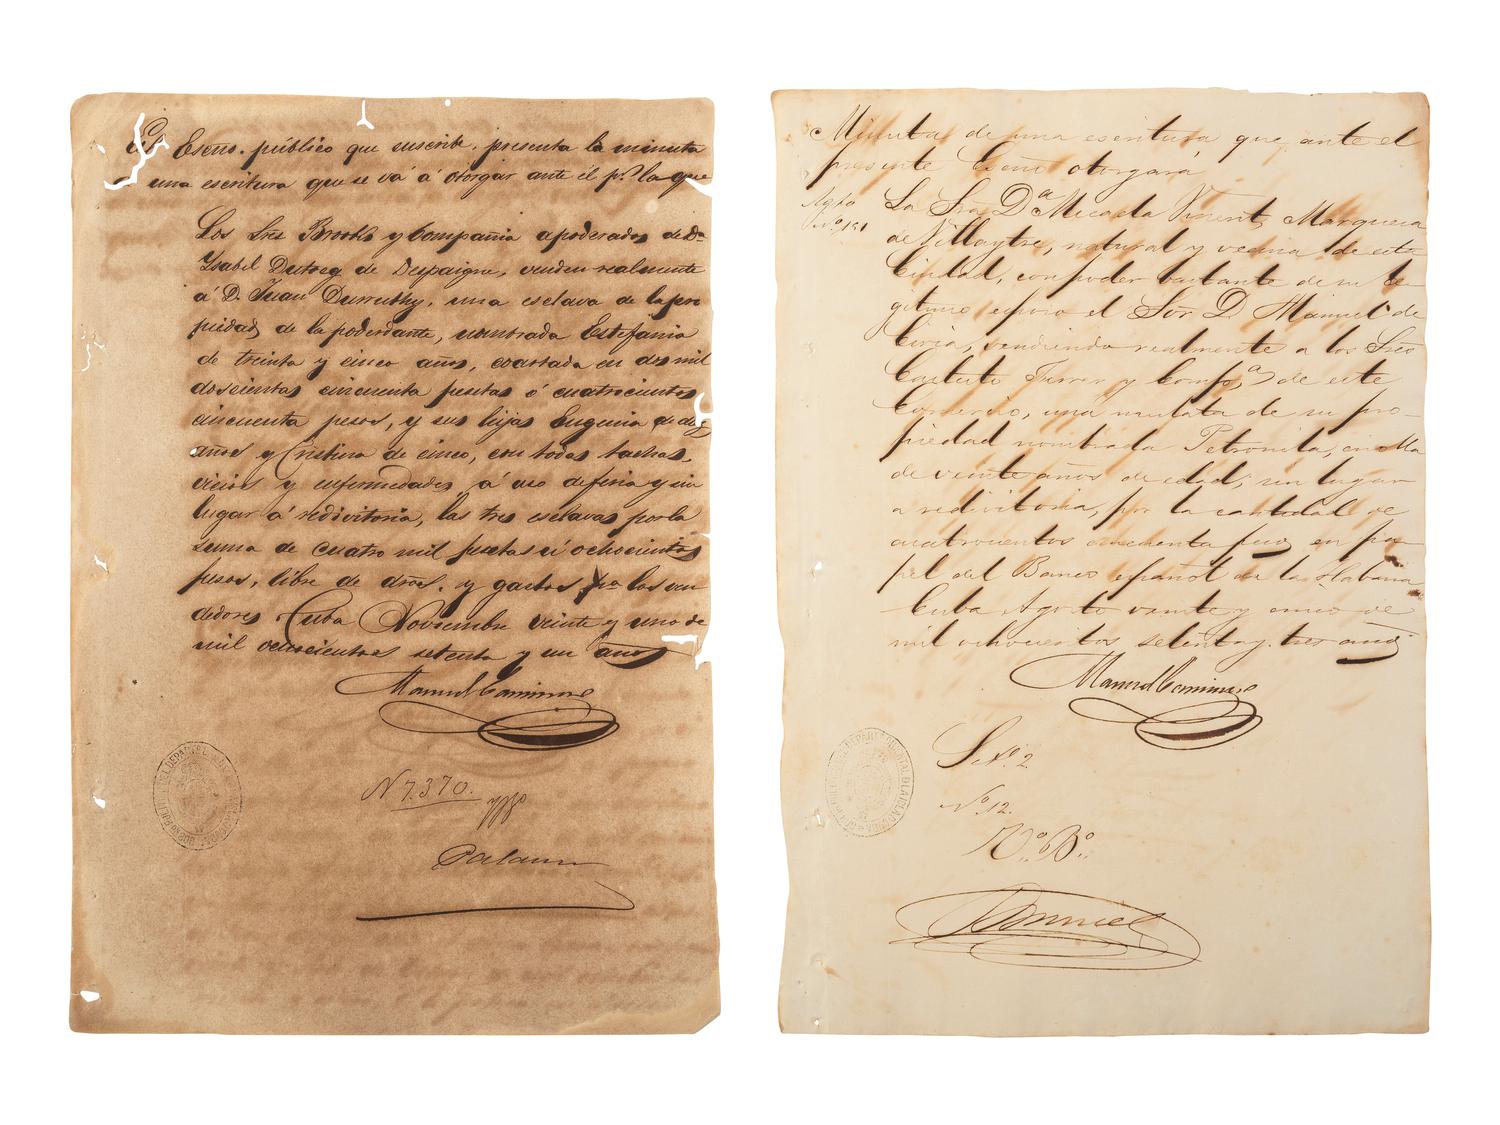 El Escno. público que suscribe, presenta la minuta
una escritura que se vá á otorgar ante él pr. la que
Los Sres Brooks y Compañia apoderados de Da
Ysabel Dutocq de Despaigne, venden realmente
á D. Juan Durruthy, una esclava de la pro
piedad, de la poderdante, nombrada Estefania
de treinta y cinco años, coartada en dos mil
doscientas cincuenta pesetas ó cuatrocientos
cincuenta pesos, y sus hijas Eugenia de diez
años y Cristina de cinco, con todas tachas,
vicios y enfermedades, á uso de feria y sin
lugar á redivitoria, las tres esclavas por la
suma de cuatro mil pesetas ú ochocientos
pesos, libre de dros. y gastos pra los ven
dedores Cuba Noviembre veinte y uno de
mil ochocientos setenta y un años
Manuel Caminero
N 7.370.
Minuta de una escritura que ante el
presente Escno otorgará
Agto
No 151
La Sra Da Micaela Vinent, Marquesa
de Villaytre, natural y vecina de esta
Ciudad, con poder bastante de su le
gitimo esposo el Sor D Manuel de
vendiendo realmente a los Sres
Ferrer y Compa, de este
Comercio, una mulata de su pro-
piedad nombrada Petronila, criolla
de veinte años de edad, sin lugar
a redivitoria, por la cantidad de
cuatrocientos cincuenta pesos en pa-
pel del Banco español de la Habana
Cuba Agosto veinte y cinco de
mil ochocientos setenta y tres años
Manuel Caminero
No. 2
No 12.
Vo. Bo.